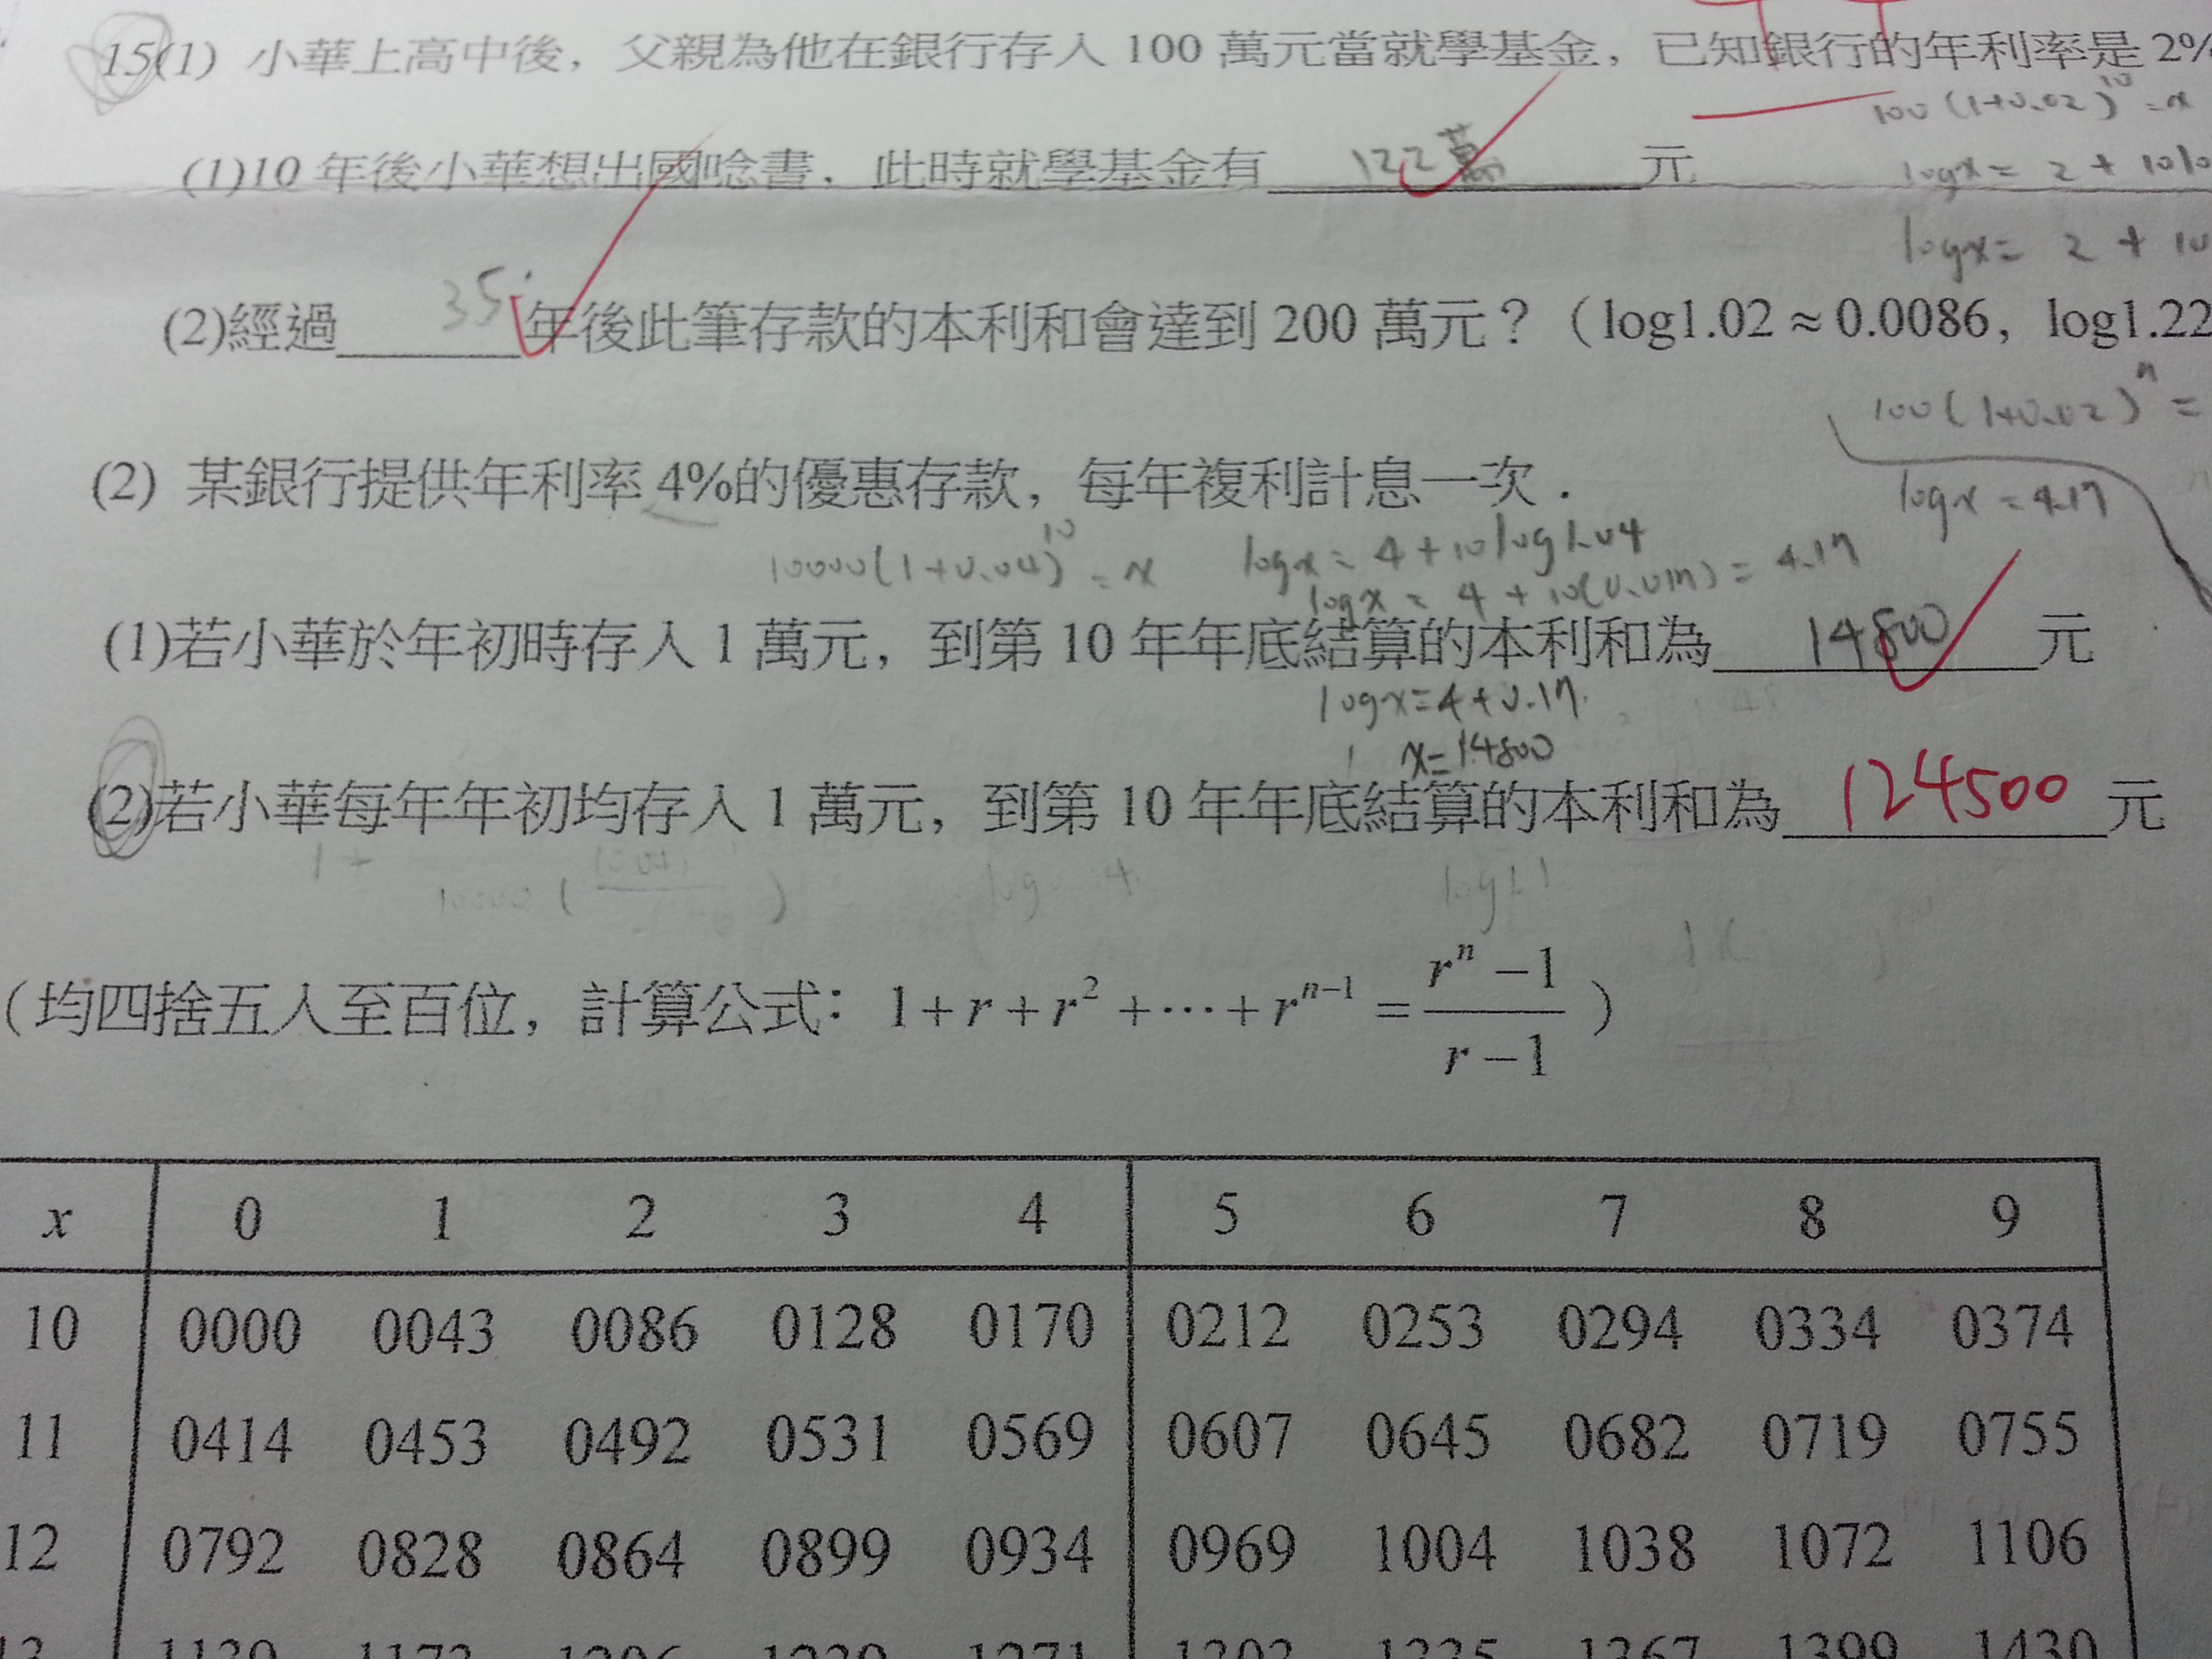 15(1) 小華上高中後，父親為他在銀行存入 100 萬元當就學基金，已知銀行的年利率是 2%
100(1+0.02)^10 = x
(1)10 年後小華想出國唸書，此時就學基金有 122萬 元
logx = 2 + 10lo
logx = 2 + 10
(2)經過 35 年後此筆存款的本利和會達到 200 萬元？（log1.02 ≈ 0.0086，log1.22
100(1+0.02)^n =
(2) 某銀行提供年利率 4%的優惠存款，每年複利計息一次．
logx = 4.17
10000(1+0.04)^10 = x logx = 4 + 10log1.04
logx = 4 + 10(0.017) = 4.17
(1)若小華於年初時存入 1 萬元，到第 10 年年底結算的本利和為 14800 元
logx = 4 + 0.17
x = 14800
(2)若小華每年年初均存入 1 萬元，到第 10 年年底結算的本利和為 124500 元
（均四捨五入至百位，計算公式：1 + r + r² + ⋯ + r^(n−1) = (r^n − 1)/(r − 1)）
x 0 1 2 3 4 5 6 7 8 9
10 0000 0043 0086 0128 0170 0212 0253 0294 0334 0374
11 0414 0453 0492 0531 0569 0607 0645 0682 0719 0755
12 0792 0828 0864 0899 0934 0969 1004 1038 1072 1106
13 1139 1173 1206 1239 1271 1303 1335 1367 1399 1430